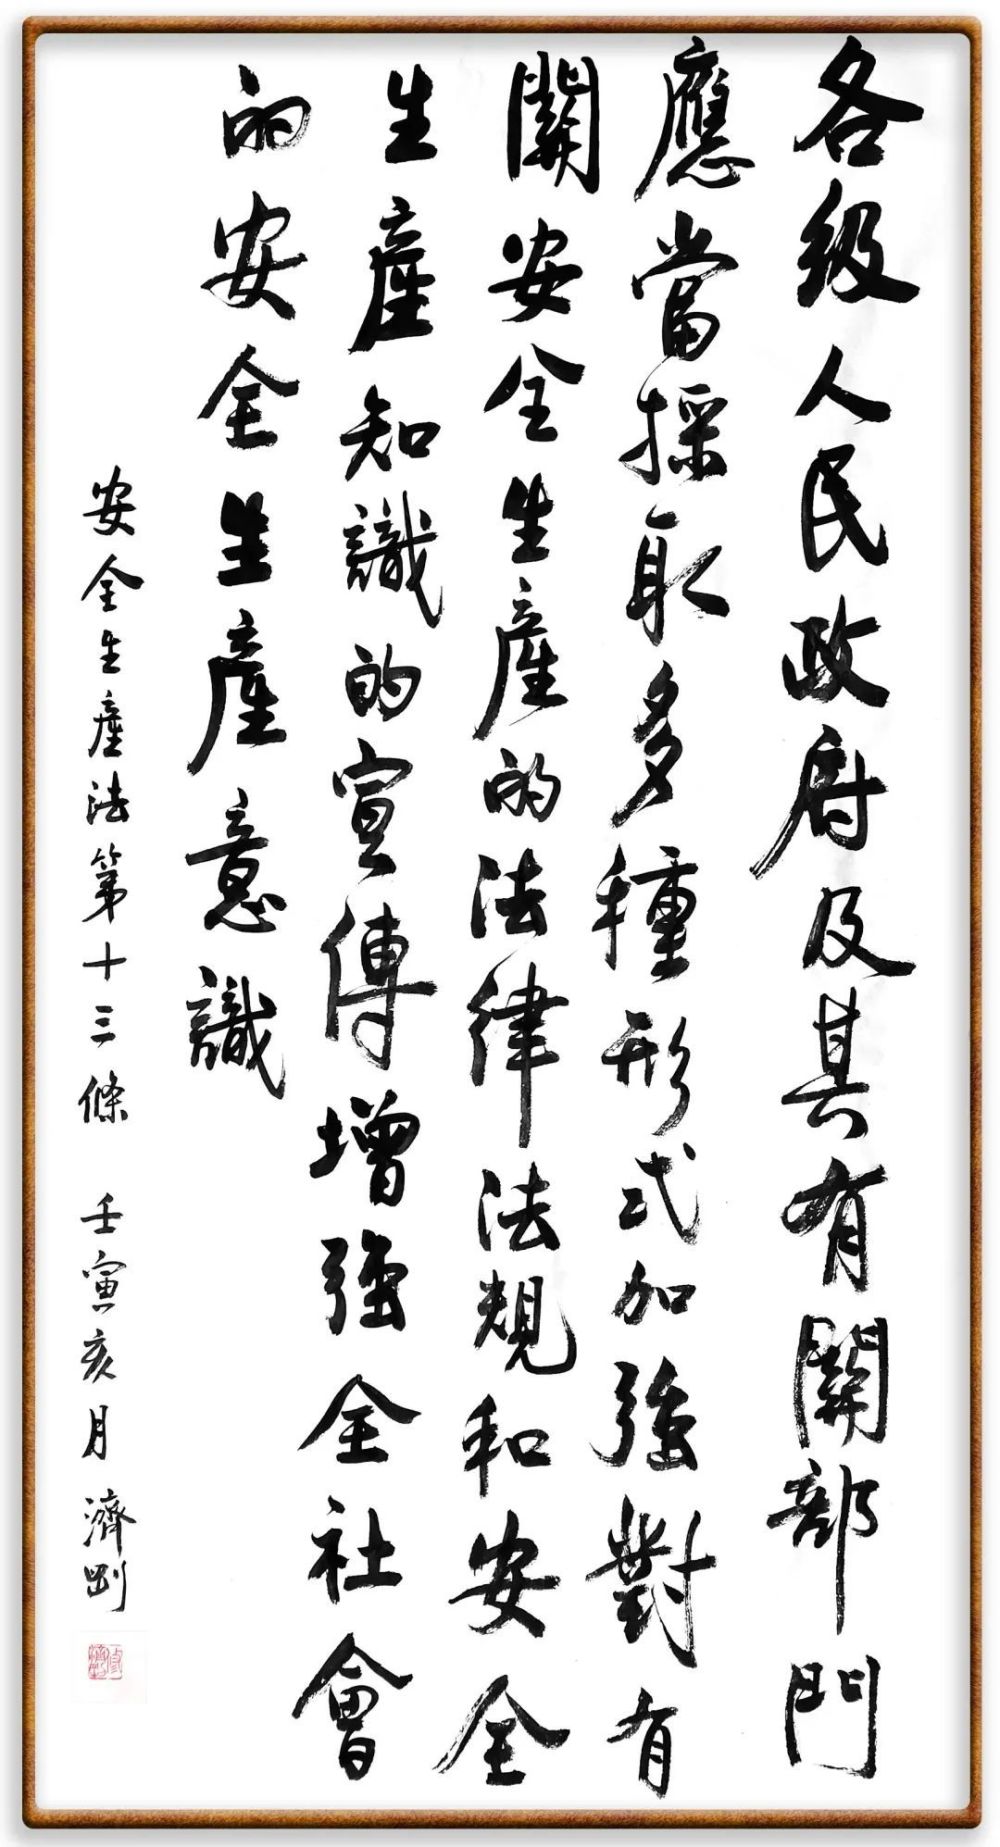 各級人民政府及其有關部門
應當採取多種形式加强對有
關安全生產的法律法規和安全
生產知識的宣傳增强全社會
的安全生產意識
安全生產法第十三條 壬寅亥月 濟剛